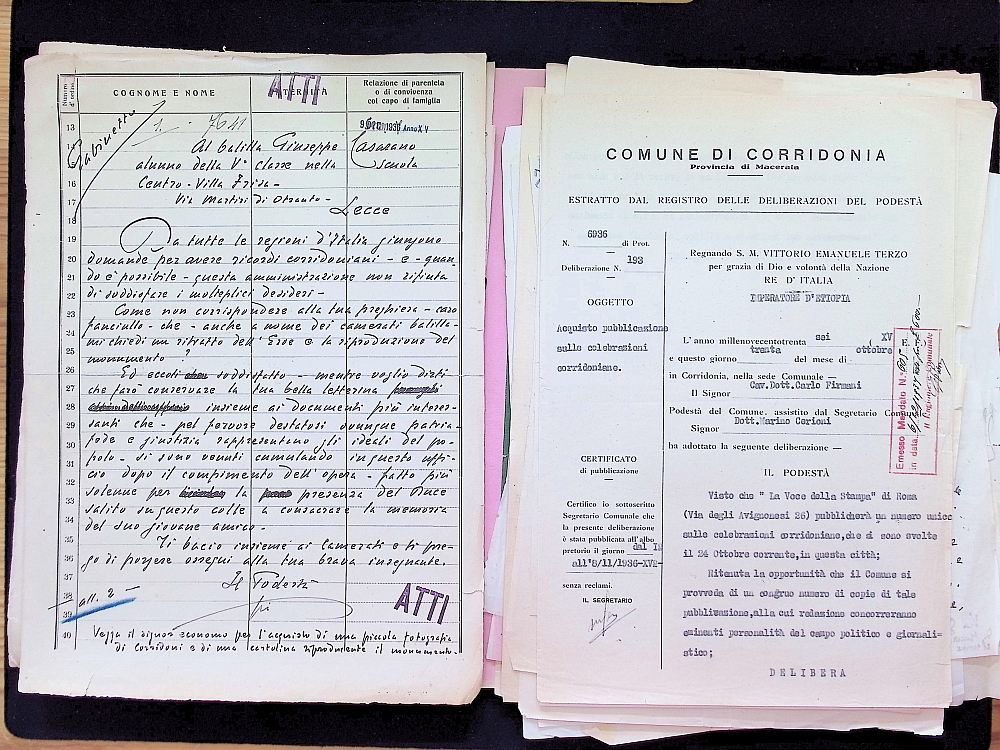 Numero d'ordine
COGNOME E NOME
ATTI
Relazione di parentela
o di convivenza
col capo di famiglia
13
1. 7641
Anno XV
Gabinetto
14
Al balilla Giuseppe Casarano
15
alunno della Vª classe nella Scuola
16
Centro - Villa Frisa -
17
Via Martiri di Otranto -
18
Lecce
19
Da tutte le regioni d'Italia giungono
20
domande per avere ricordi corridoniani - e - quan-
21
do è possibile - questa amministrazione non rifiuta
22
di soddisfare i molteplici desideri -
23
Come non corrispondere alla tua preghiera - caro
24
fanciullo - che - anche a nome dei camerati balilla -
25
mi chiedi un ritratto dell'Eroe e la riproduzione del
26
monumento ?
Ed eccoti soddisfatto - mentre voglio dirti
27
che farò conservare la tua bella letterina
28
insieme ai documenti più interes-
29
santi che - nel fervore destatosi ovunque patria -
30
fede e giustizia rappresentano gli ideali del po-
31
polo - si sono venuti cumulando in questo uffi-
32
cio dopo il compimento dell'opera - fatto più
33
solenne per la presenza del Duce
34
salito su questo colle a consacrare la memoria
del suo giovane amico -
35
Ti bacio insieme ai Camerati e ti pre-
36
go di porgere ossequi alla tua brava insegnante.
37
Il Podestà
38
all. 2 -
ATTI
39
40
Vegga il signor economo per l'acquisto di una piccola fotografia
di Corridoni e di una cartolina riproducente il monumento.
COMUNE DI CORRIDONIA
Provincia di Macerata
ESTRATTO DAL REGISTRO DELLE DELIBERAZIONI DEL PODESTÀ
N. 6936 di Prot.
Deliberazione N. 193
OGGETTO
Acquisto pubblicazione
sulle celebrazioni
corridoniane.
CERTIFICATO
di pubblicazione
Certifico io sottoscritto
Segretario Comunale che
la presente deliberazione
è stata pubblicata all'albo
pretorio il giorno dal
all'8/11/1936-XV-
senza reclami.
IL SEGRETARIO
Regnando S. M. VITTORIO EMANUELE TERZO
per grazia di Dio e volontà della Nazione
RE D'ITALIA
IMPERATORE D'ETIOPIA
L'anno millenovecentotrenta sei XV E. F.
e questo giorno trenta del mese di ottobre
in Corridonia, nella sede Comunale —
Il Signor Cav.Dott.Carlo Firmani
Podestà del Comune, assistito dal Segretario Comunale
Signor Dott.Marino Cerioni
ha adottato la seguente deliberazione —
Emesso Mandato N.
in data
Il Ragioniere Comunale
IL PODESTÀ
Visto che " La Voce della Stampa" di Roma
(Via degli Avignonesi 26) pubblicherà un numero unico
sulle celebrazioni corridoniane,che si sono svolte
il 24 Ottobre corrente,in questa città;
Ritenuta la opportunità che il Comune si
provveda di un congruo numero di copie di tale
pubblicazione,alla cui relazione concorreranno
eminenti personalità del campo politico e giornali-
stico;
DELIBERA